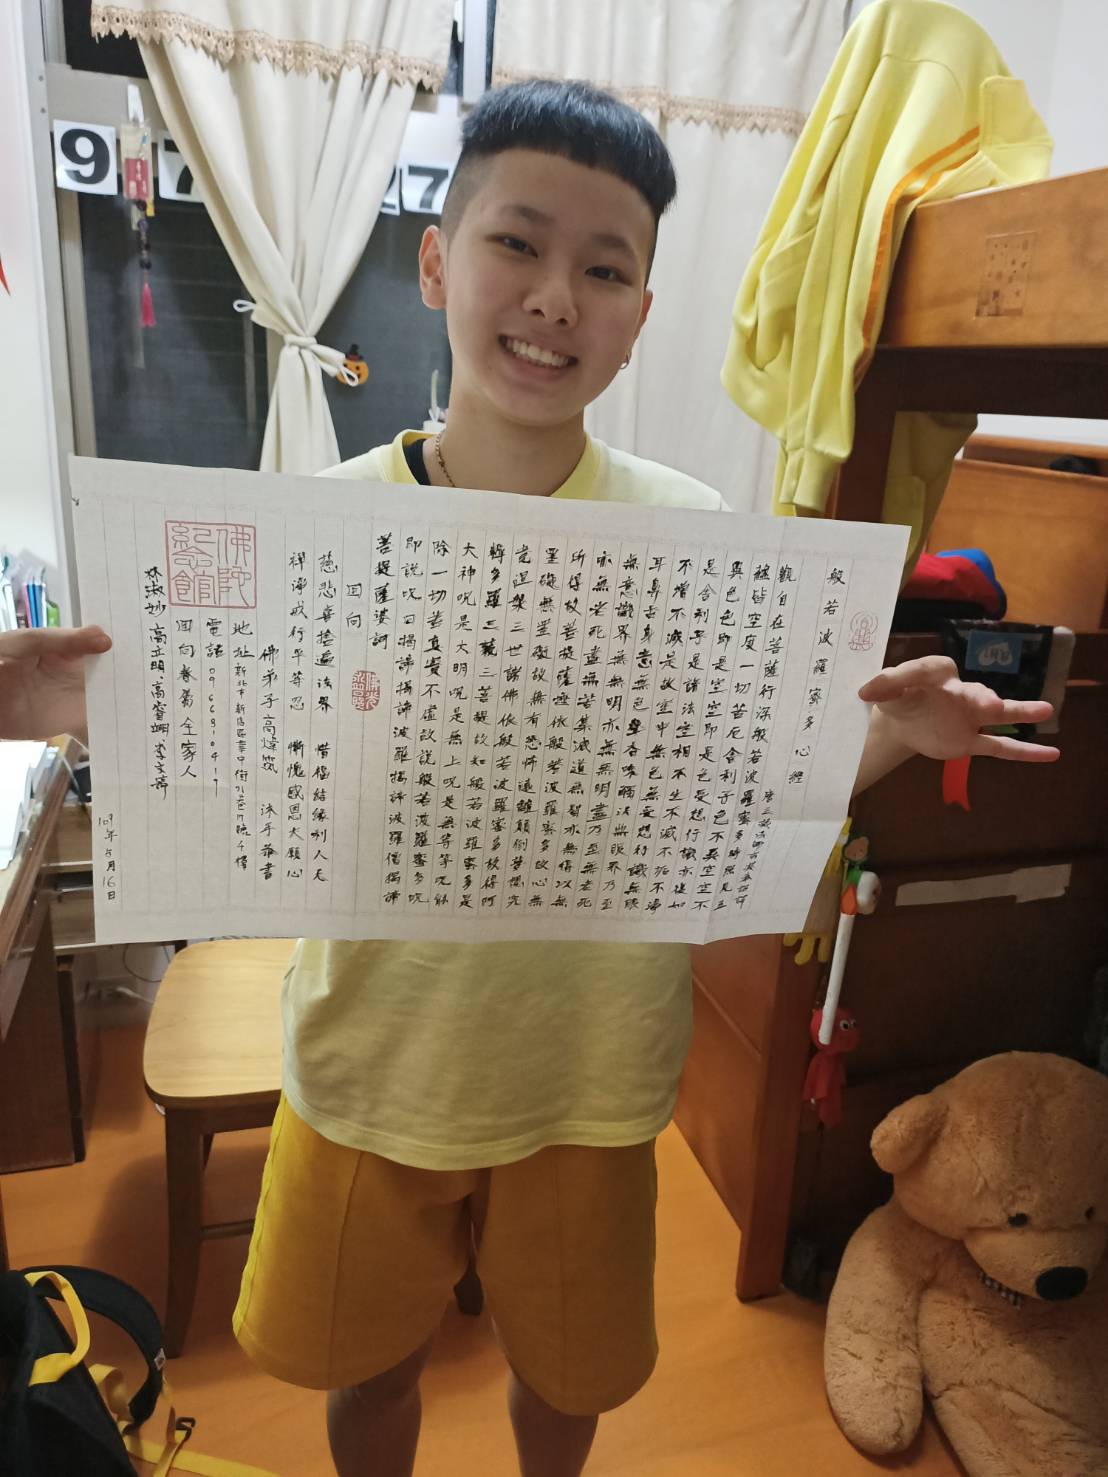 般若波羅蜜多心經
觀自在菩薩行深般若波羅蜜多時照見五
蘊皆空度一切苦厄舍利子色不異空空不
異色色即是空空即是色受想行識亦復如
是舍利子是諸法空相不生不滅不垢不淨
不增不減是故空中無色無受想行識無眼
耳鼻舌身意無色聲香味觸法無眼界乃至
無意識界無無明亦無無明盡乃至無老死
亦無老死盡無苦集滅道無智亦無得以無
所得故菩提薩埵依般若波羅蜜多故心無
罣礙無罣礙故無有恐怖遠離顛倒夢想究
竟涅槃三世諸佛依般若波羅蜜多故得阿
耨多羅三藐三菩提故知般若波羅蜜多是
大神呪是大明呪是無上呪是無等等呪能
除一切苦真實不虛故說般若波羅蜜多呪
即說呪曰揭諦揭諦波羅揭諦波羅僧揭諦
菩提薩婆訶
回向
慈悲喜捨遍法界 惜福結緣利人天
禪淨戒行平等忍 慚愧感恩大願心
佛弟子高 沐手恭書
地址新北市新店區
電話
回向眷屬全家人
佛陀紀念館
109年5月16日
9
7
27